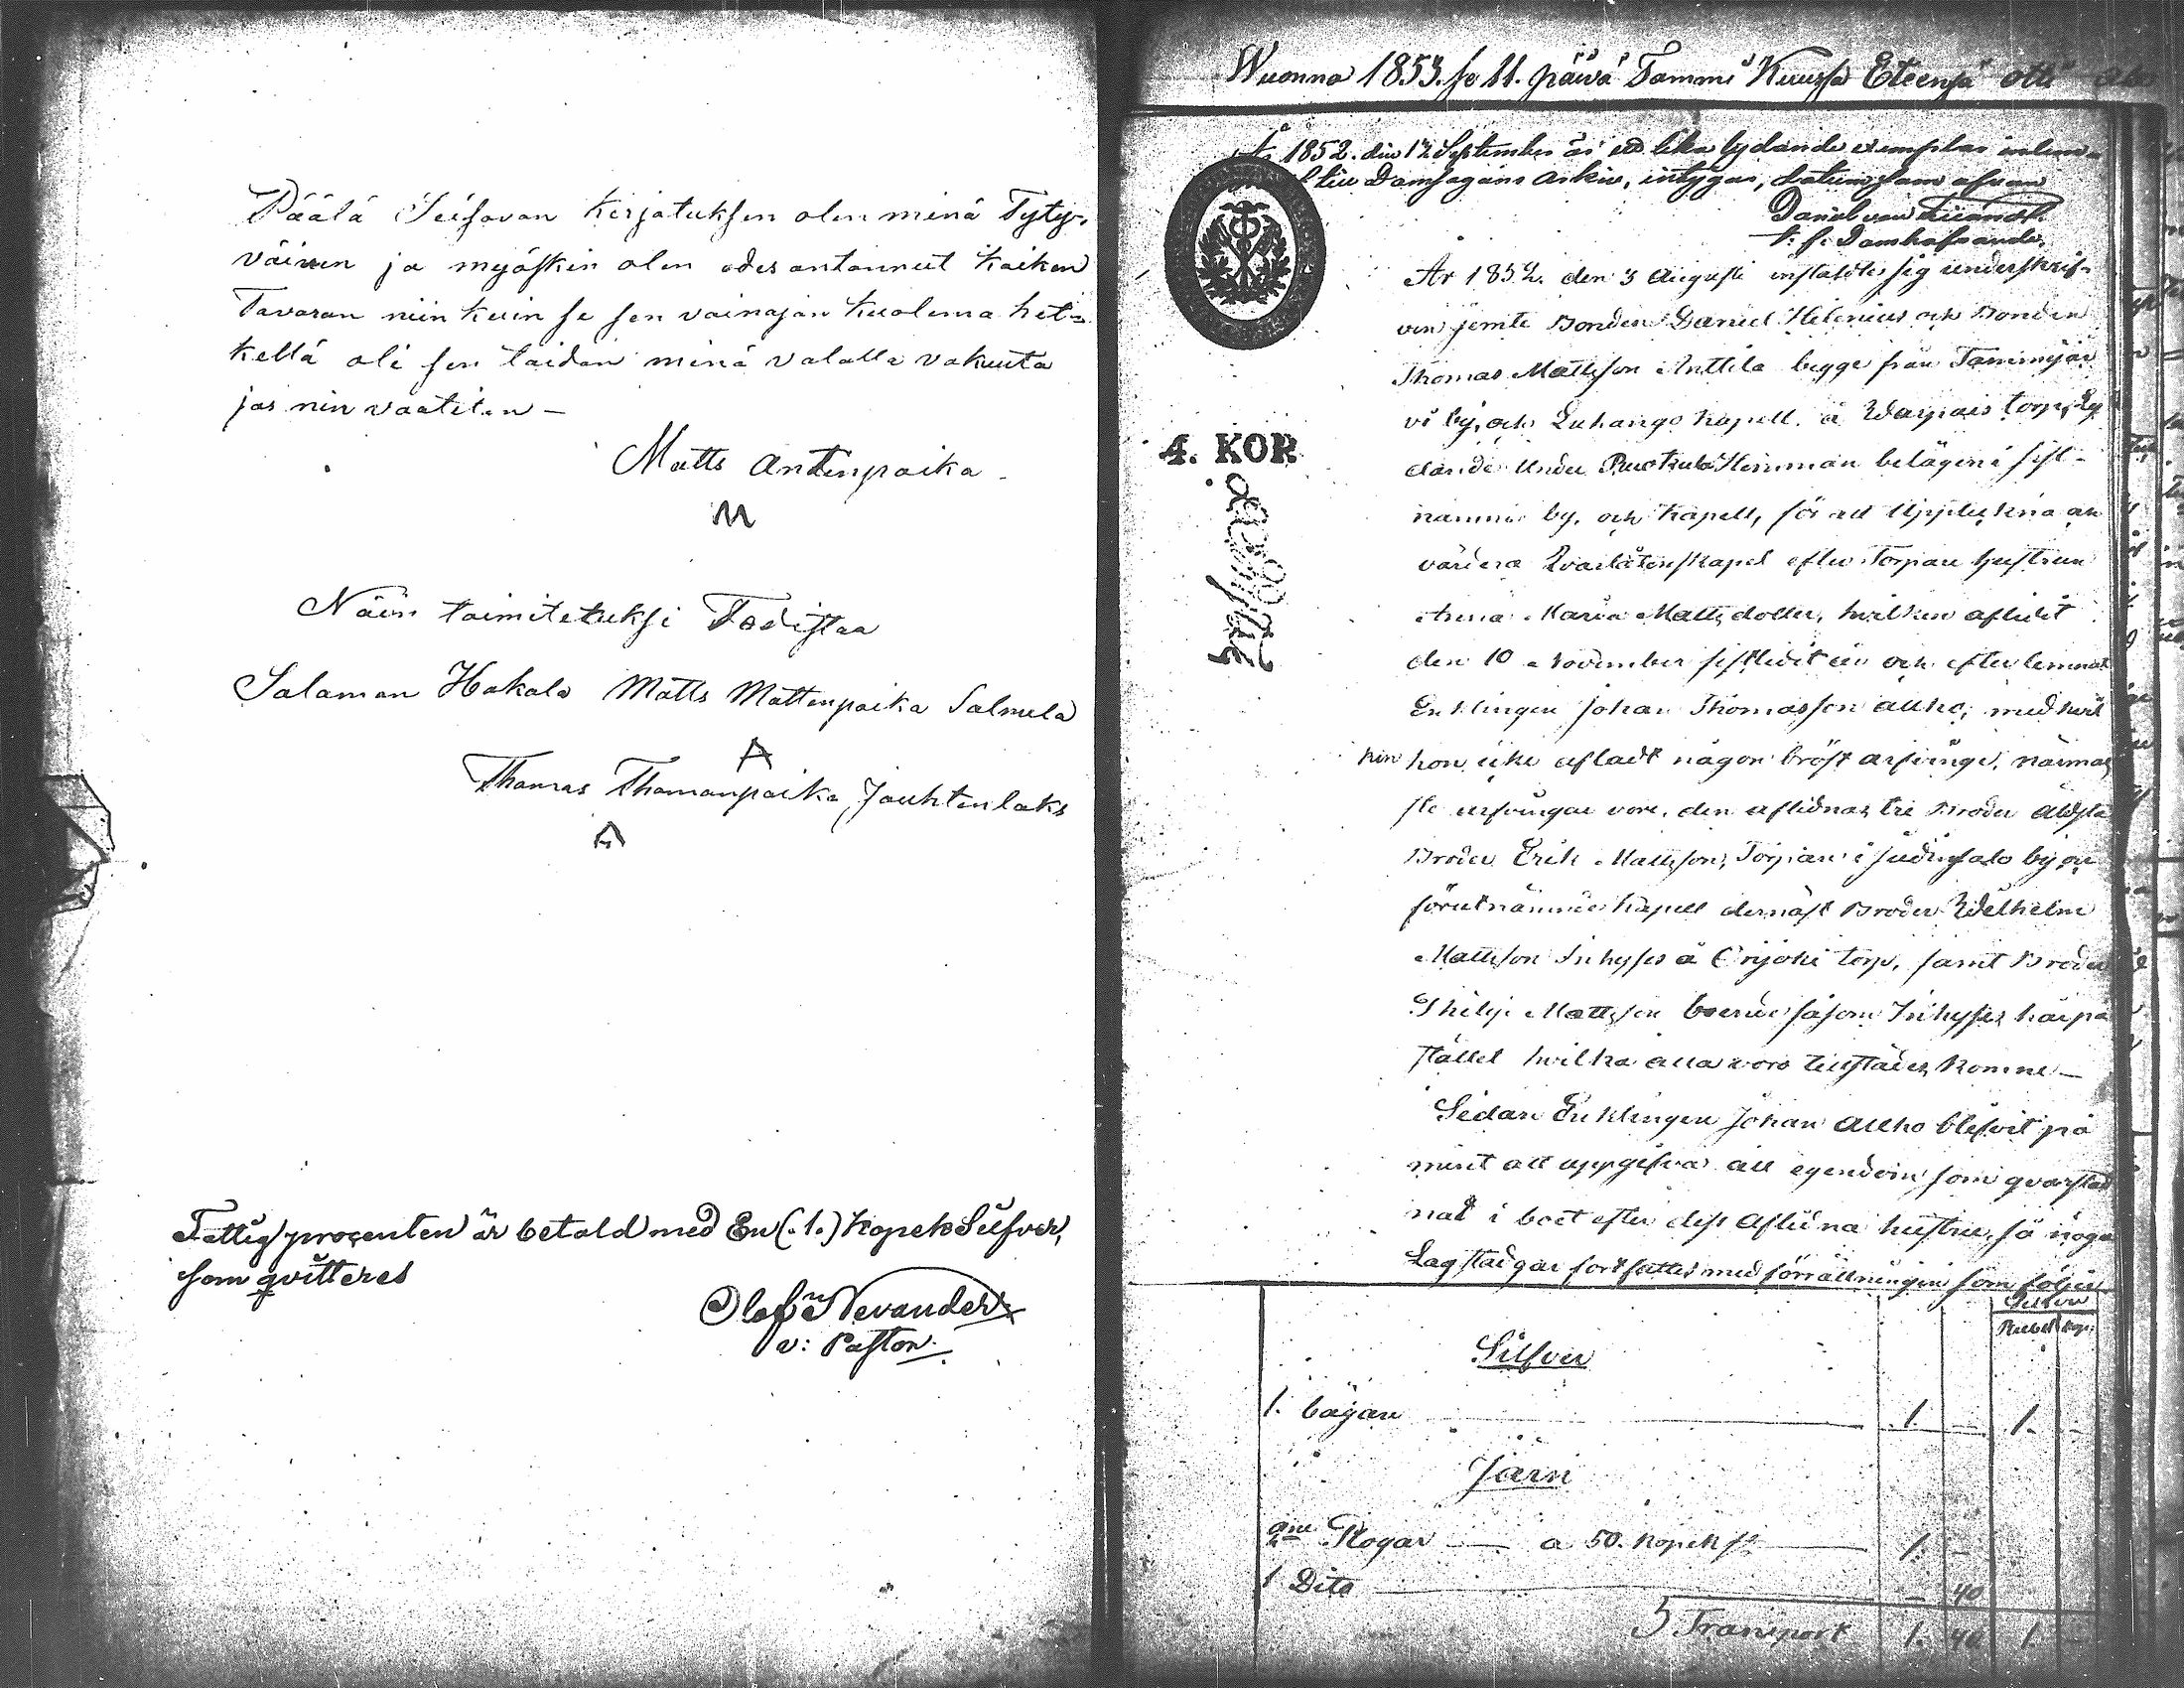 Päälä Seisovan Kirjatuksen olen minä Tyty-
väinen ja myöskin olen edes antannut Kaiken
Tavaran niin kuin se sen vainajan Kuolema het-
kellä oli sen taidan minä valalla vakuuta
jos niin vaatitan —
Matts Antinpoika
M
Näin toimitetuksi Todistaa
Salamon Hakala Matts Mattenpoika Salmela
A
Thomas Thomanpoika Jouhtenlaks
A
Fattigprocenten är betald med En (.1.) Kopek Silfver,
som qvitteres
Olof Nevander
v: Pastor.
Wuonna 1853. se 11. päivä Tammi Kuussa Eteensä otti
År 1852. den 12 September är ett lika lydande exemplar inlem-
till Domsagans Arkiv, intygas, datum som ofvan
Daniel von
t. f. Domhafvande,
4. KOP.
År 1852. den 3 Augusti instälte sig underskrif-
ven jemte Bonden Daniel Helenius och Bonden
Thomas Mattsson Anttila begge från Tammijär
vi by, och Luhango Kapell. å Warpais torp, Ly
dande Under Ruokula Hemman belägen i sist-
nämnde by. och Kapell, för att Uppteckna och
värdera Qvarlåtenskapet efter Torpare hustrun
Anna Maria Mattsdotter, hvilken aflidit
den 10 November sistledit år och efterlemnat
Enklingen Johan Thomasson Auho, med hvil
ken hon icke afladt någon bröst arfvinge, närma
ste arfvingar vore, den aflidnas tre Bröder äldsta
Broder Erik Mattsson, Torpare i Judinsalo by och
förutnämnde Kapell dernäst Broder Wilhelm
Mattsson Inhyses å Orijoki torp, samt Broder
Philip Mattsson boende såsom Inhyses här på
stället hvilka alla voro tillstädes komne —
Sedan Enklingen Johan Auho blifvit på
mint att uppgifva all egendom som qvarstad
nat i boet efter dess Aflidna hustru, så noga
Lag stadgar fortsattes med förrättningen som följer
Silfver
Rubel Kop:
Silfver
1. bägare — 1. — 1. —
Järn
2ne Plogar — a 50. Kopek st — 1. —
1 Dito — — 40
Transport 1. 40 1.